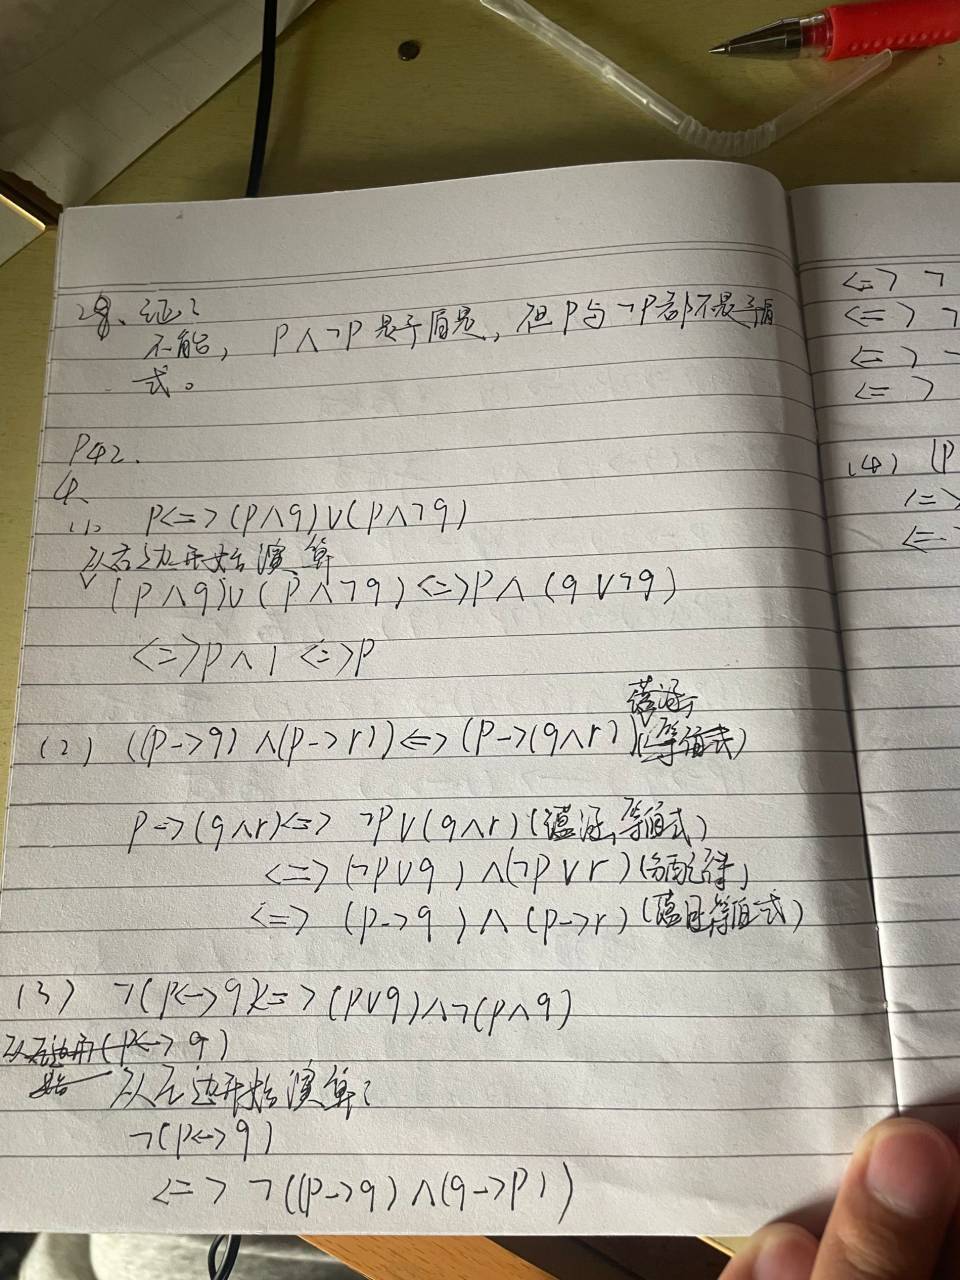 28、证:
不能，P∧¬P是矛盾是，但P与¬P都不是矛盾
式。
P42.
4、
(1) P<=>(P∧q)∨(P∧¬q)
从右边开始演算
(P∧q)∨(P∧¬q)<=>P∧(q∨¬q)
<=>P∧1<=>P
蕴涵
(2) ((P->q)∧(P->r))<=>(P->(q∧r))(等值式)
P->(q∧r)<=>¬P∨(q∧r)(蕴涵等值式)
<=>(¬P∨q)∧(¬P∨r)(分配律)
<=>(P->q)∧(P->r)(蕴涵等值式)
(3) ¬(P<->q)<=>(P∨q)∧¬(P∧q)
(P<->q)
从左边开始演算:
¬(P<->q)
<=>¬((P->q)∧(q->P))
<=>¬
<=>¬
<=>¬
<=>
(4) (P
<=>
<=>